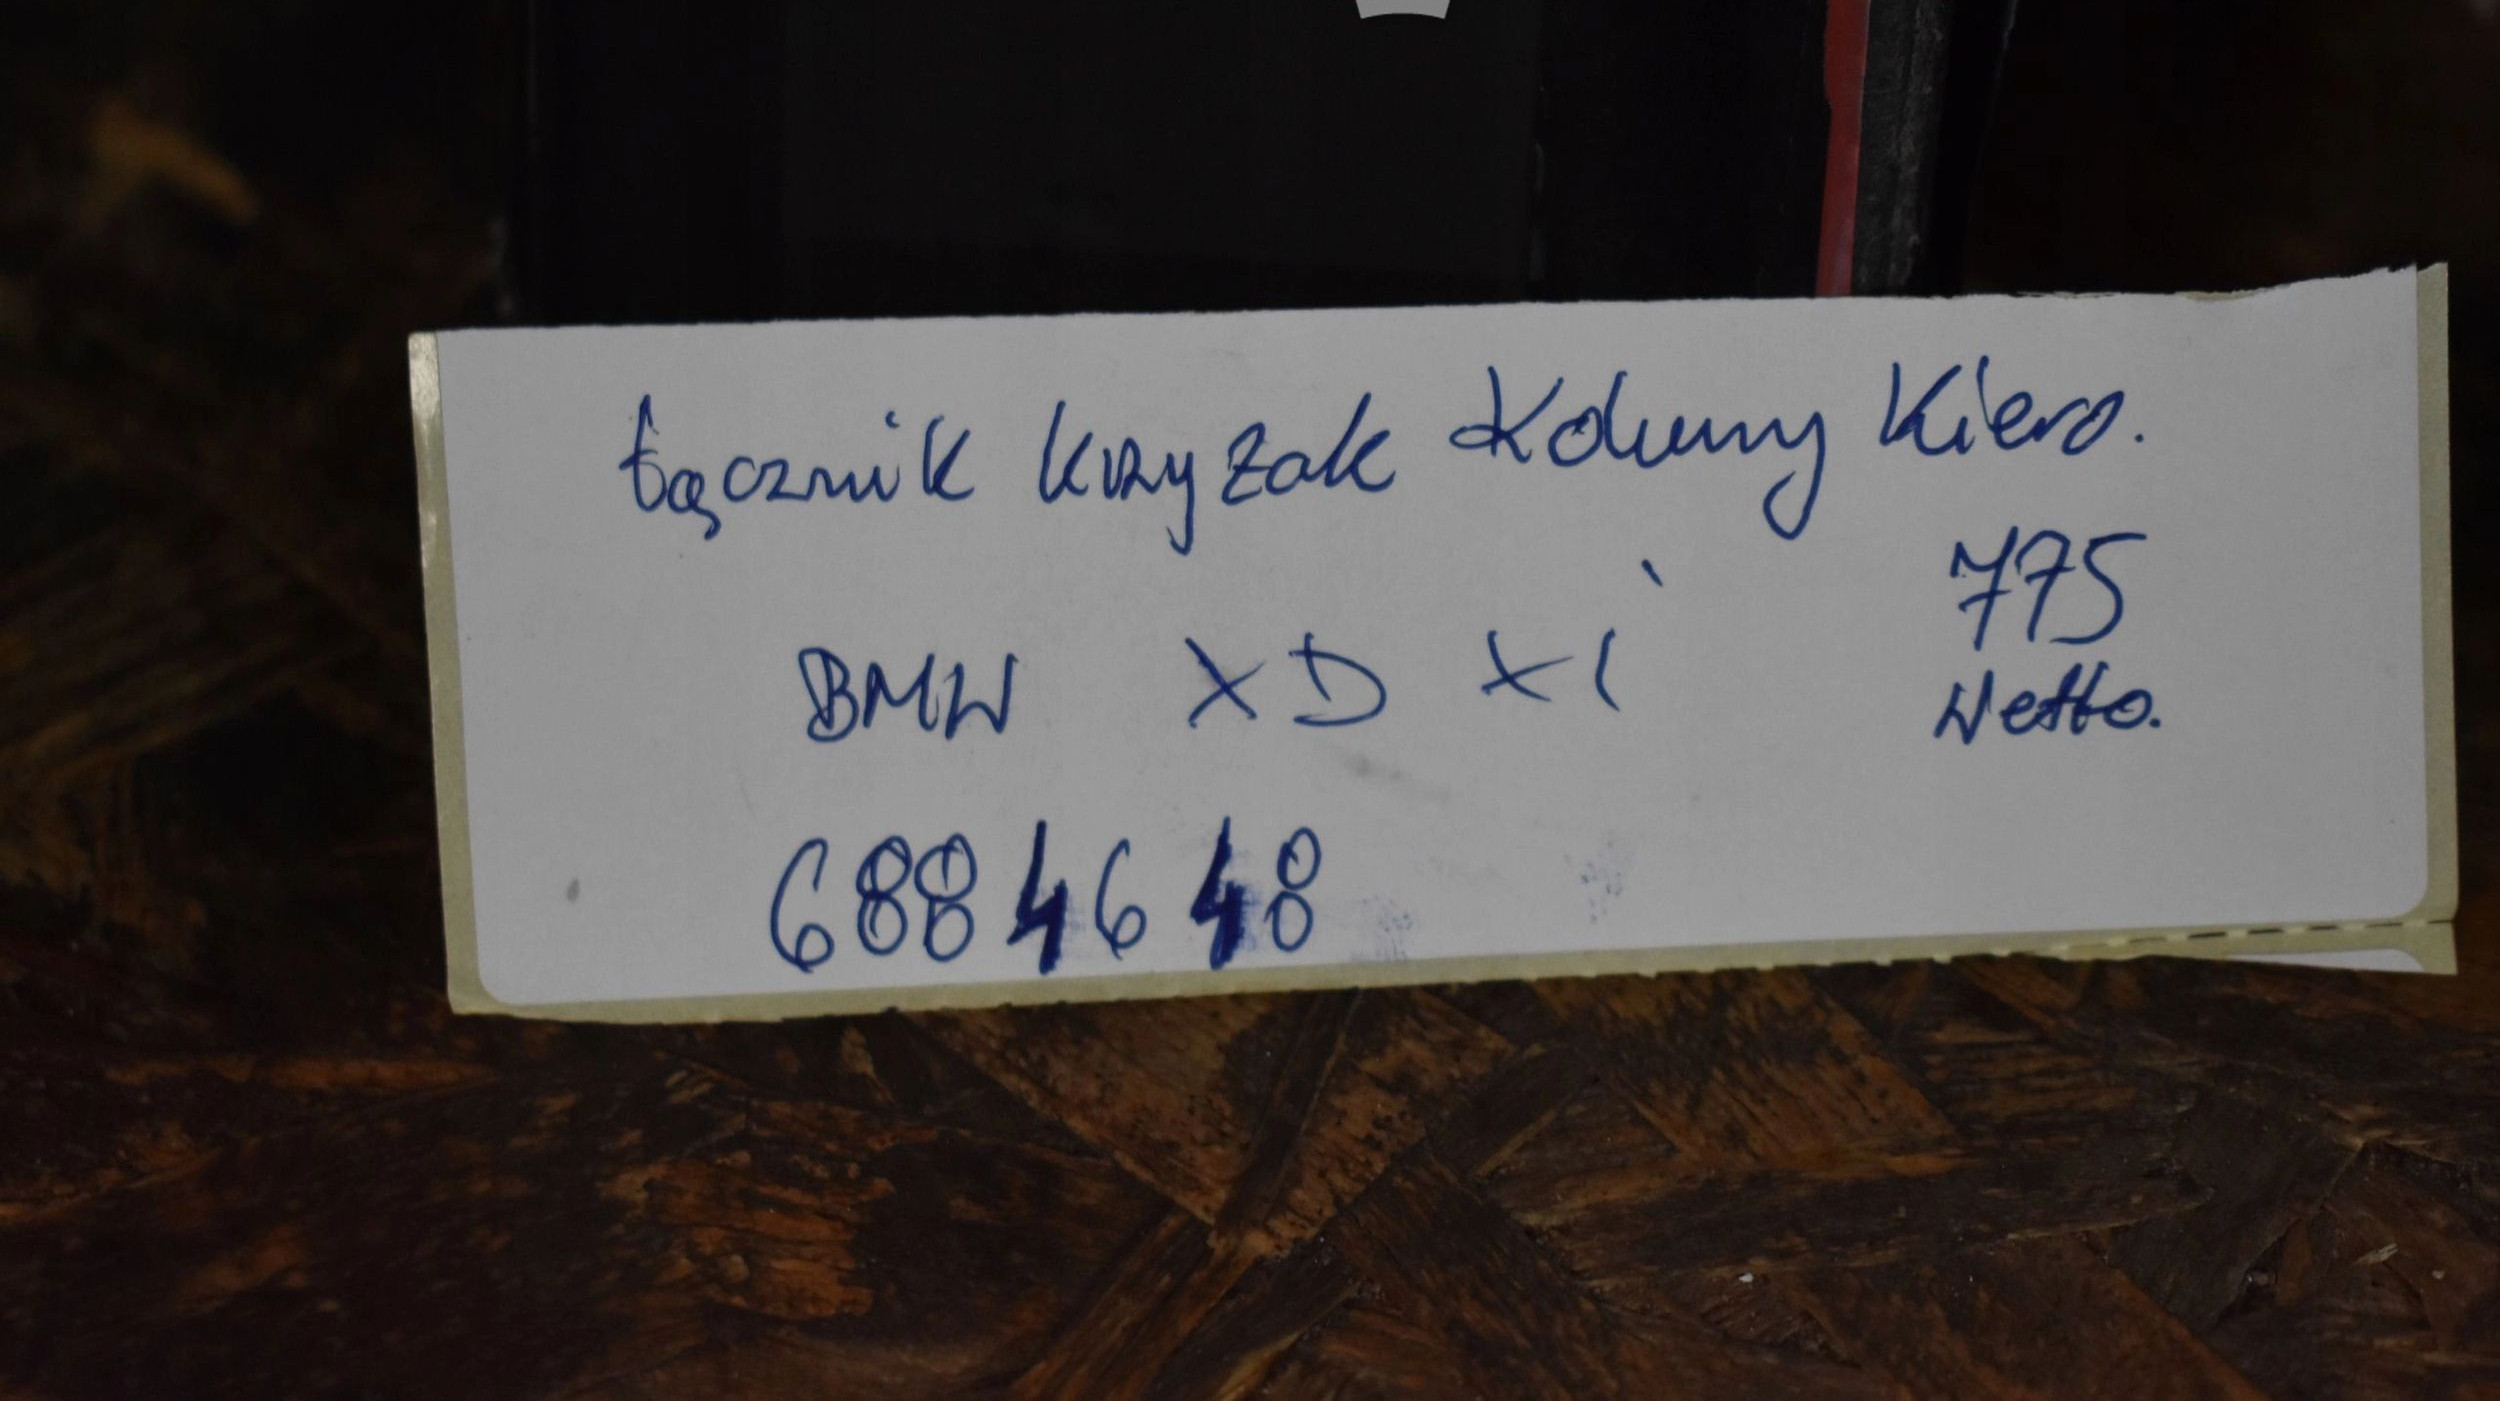 Łącznik krzyżak Kolumny Kiero.
775
BMW XD Xi
Netto.
6884648